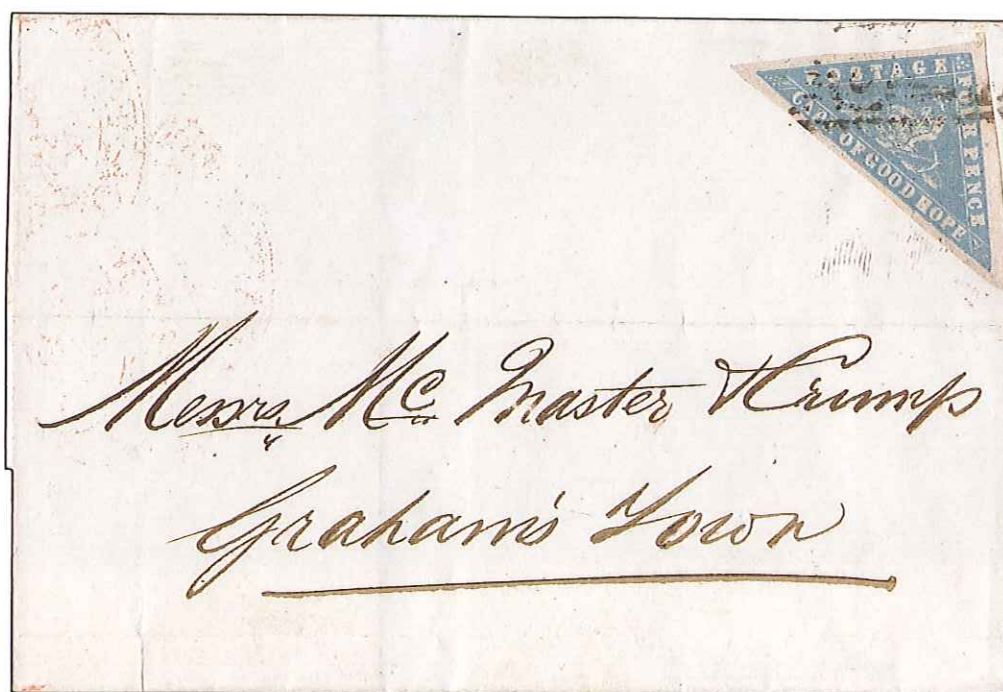 POSTAGE
FOUR PENCE
CAPE OF GOOD HOPE
Messrs. Mc. Master & Crump
Graham's Town